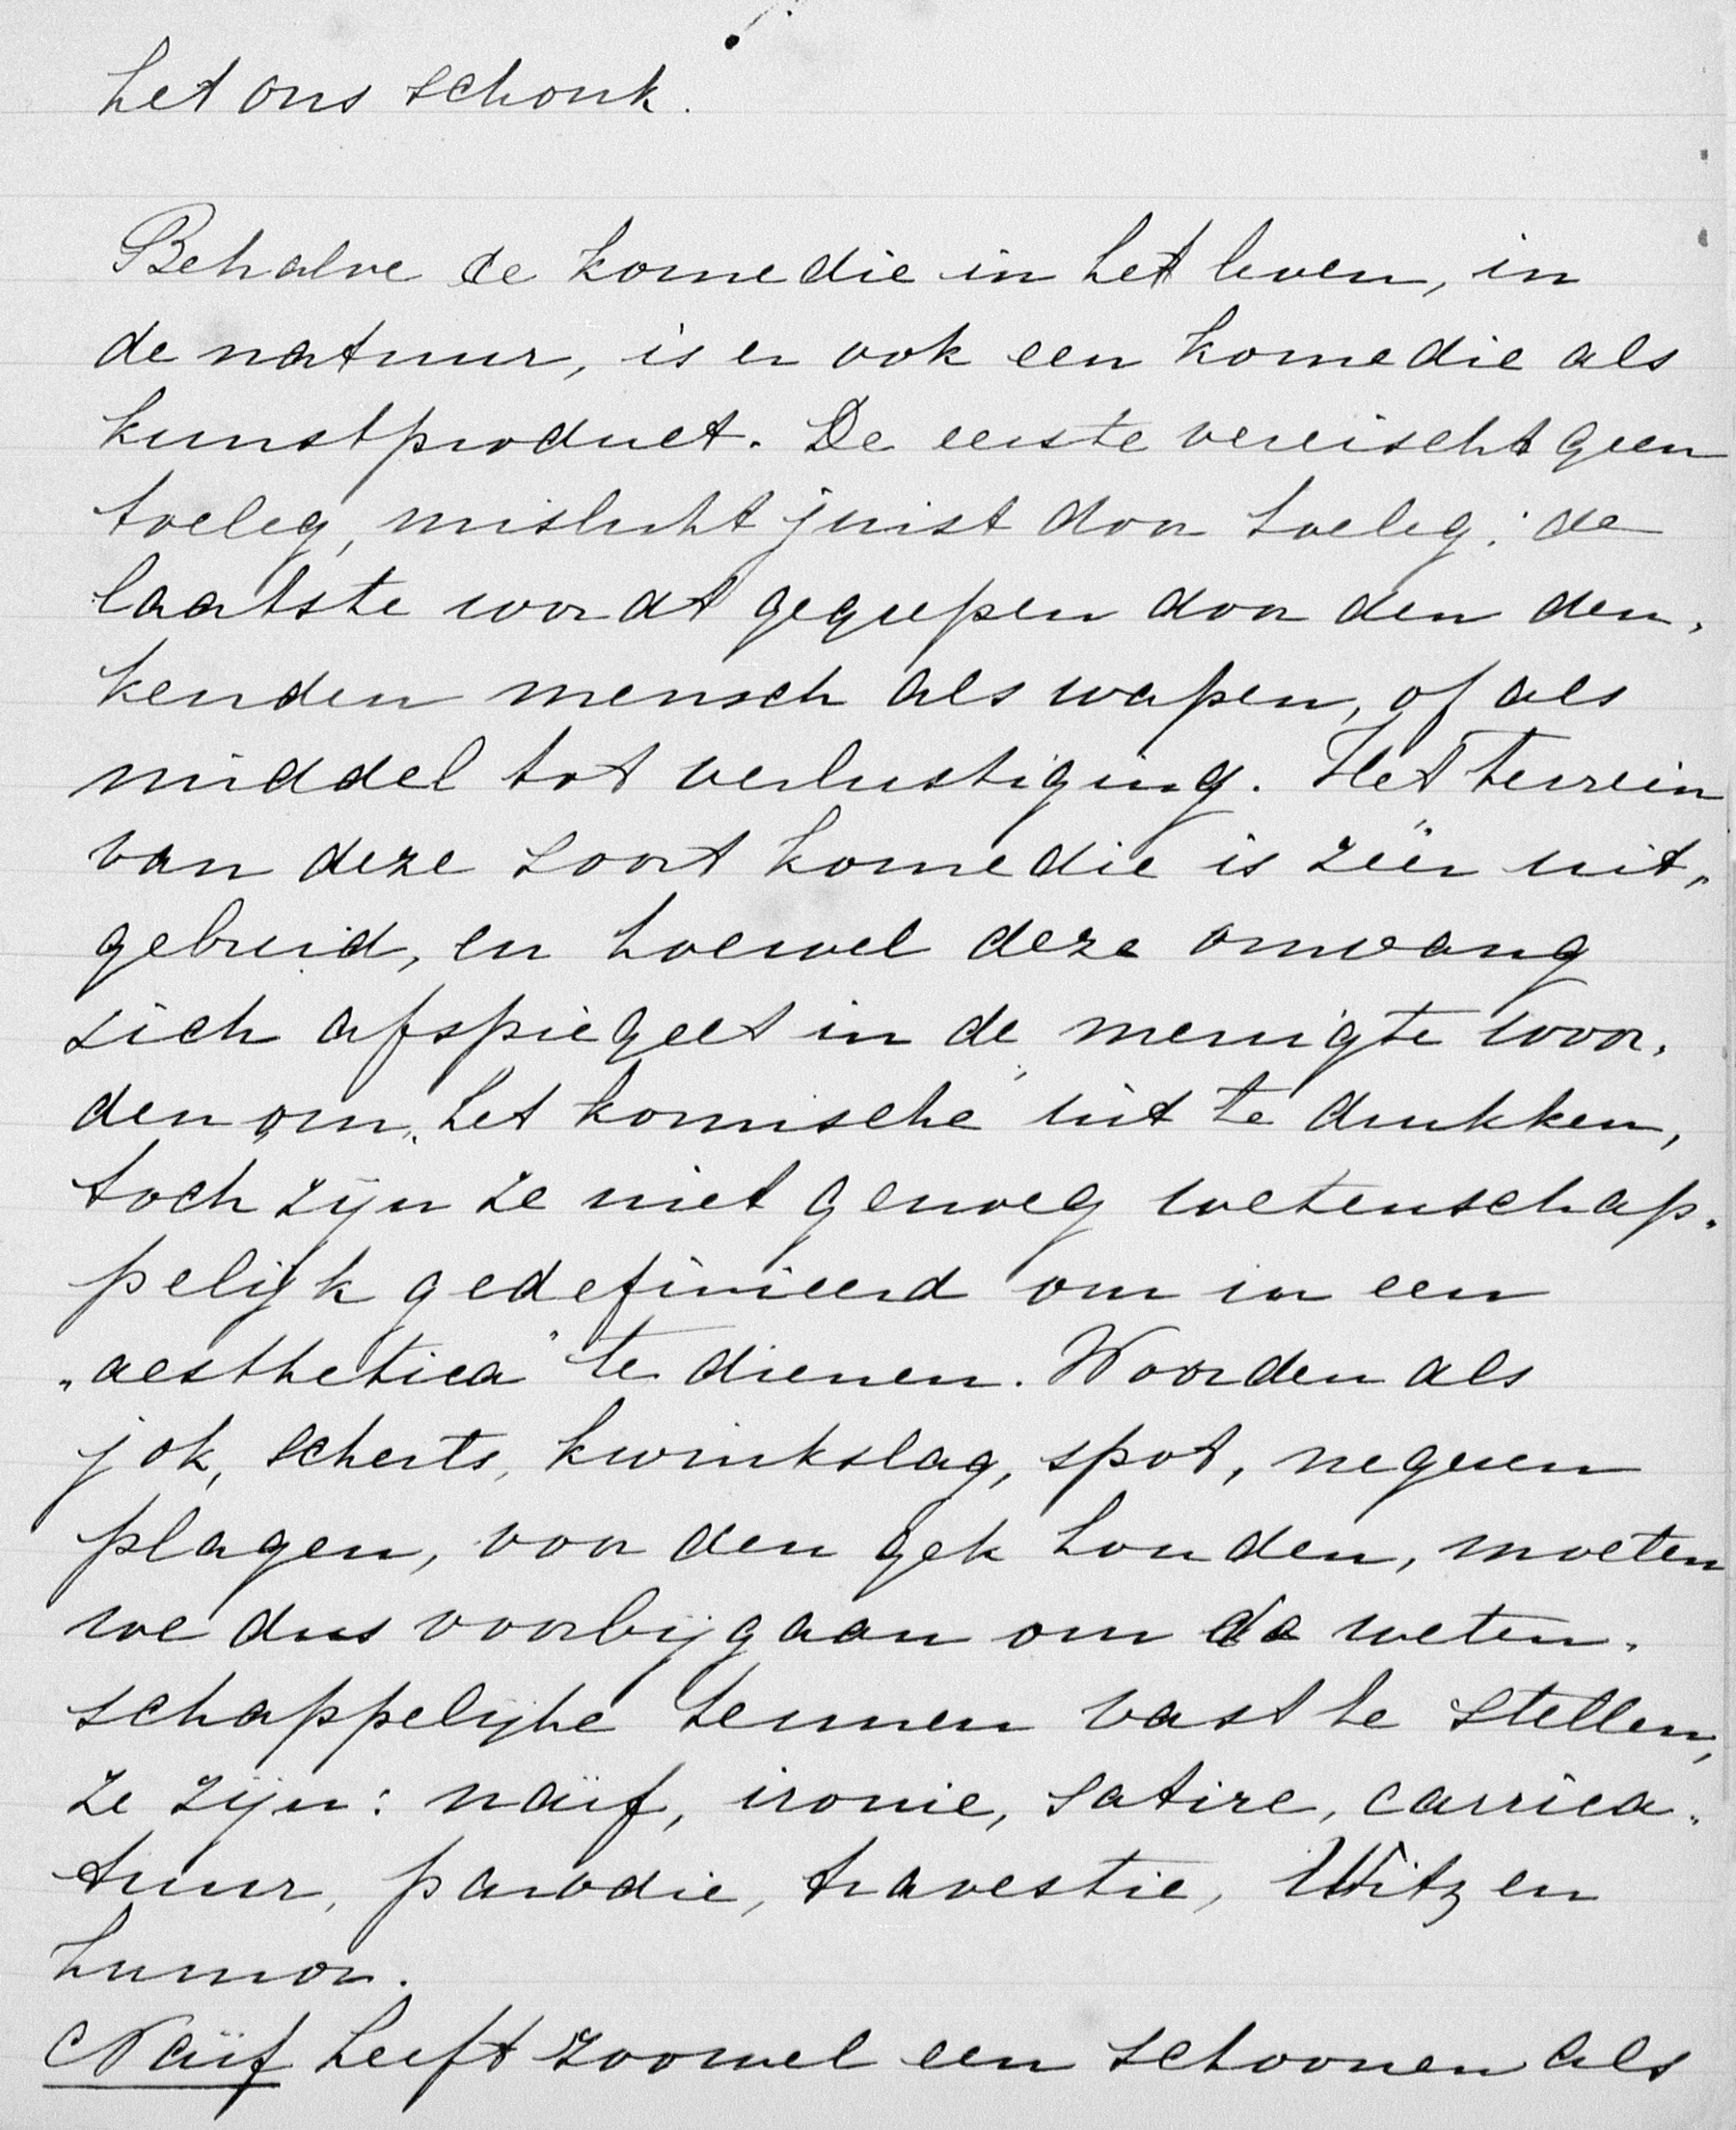 het ons schonk.
Behalve de komedie in het leven, in
de natuur, is er ook een komedie als
kunstproduct. De eerste vereischt geen
toeleg, mislukt juist door toeleg; de
laatste wordt gegrepen door den den-
kenden mensch als wapen, of als
middel tot verlustiging. Het terrein
van deze soort komedie is zéér uit-
gebreid, en hoewel deze omvang
zich afspiegelt in de menigte woor-
den om het komische uit te drukken,
toch zijn ze niet genoeg wetenschap-
pelijk gedefinieerd om in een
„aesthetica" te dienen. Woorden als
jok, scherts, kwinkslag, spot, negeren
plagen, voor den gek houden, moeten
we dus voorbijgaan om de weten-
schappelijke termen vast te stellen,
ze zijn: naïf, ironie, satire, carrica-
tuur, parodie, travestie, Witz en
humor.
Naïf heeft zoowel een schoonen als